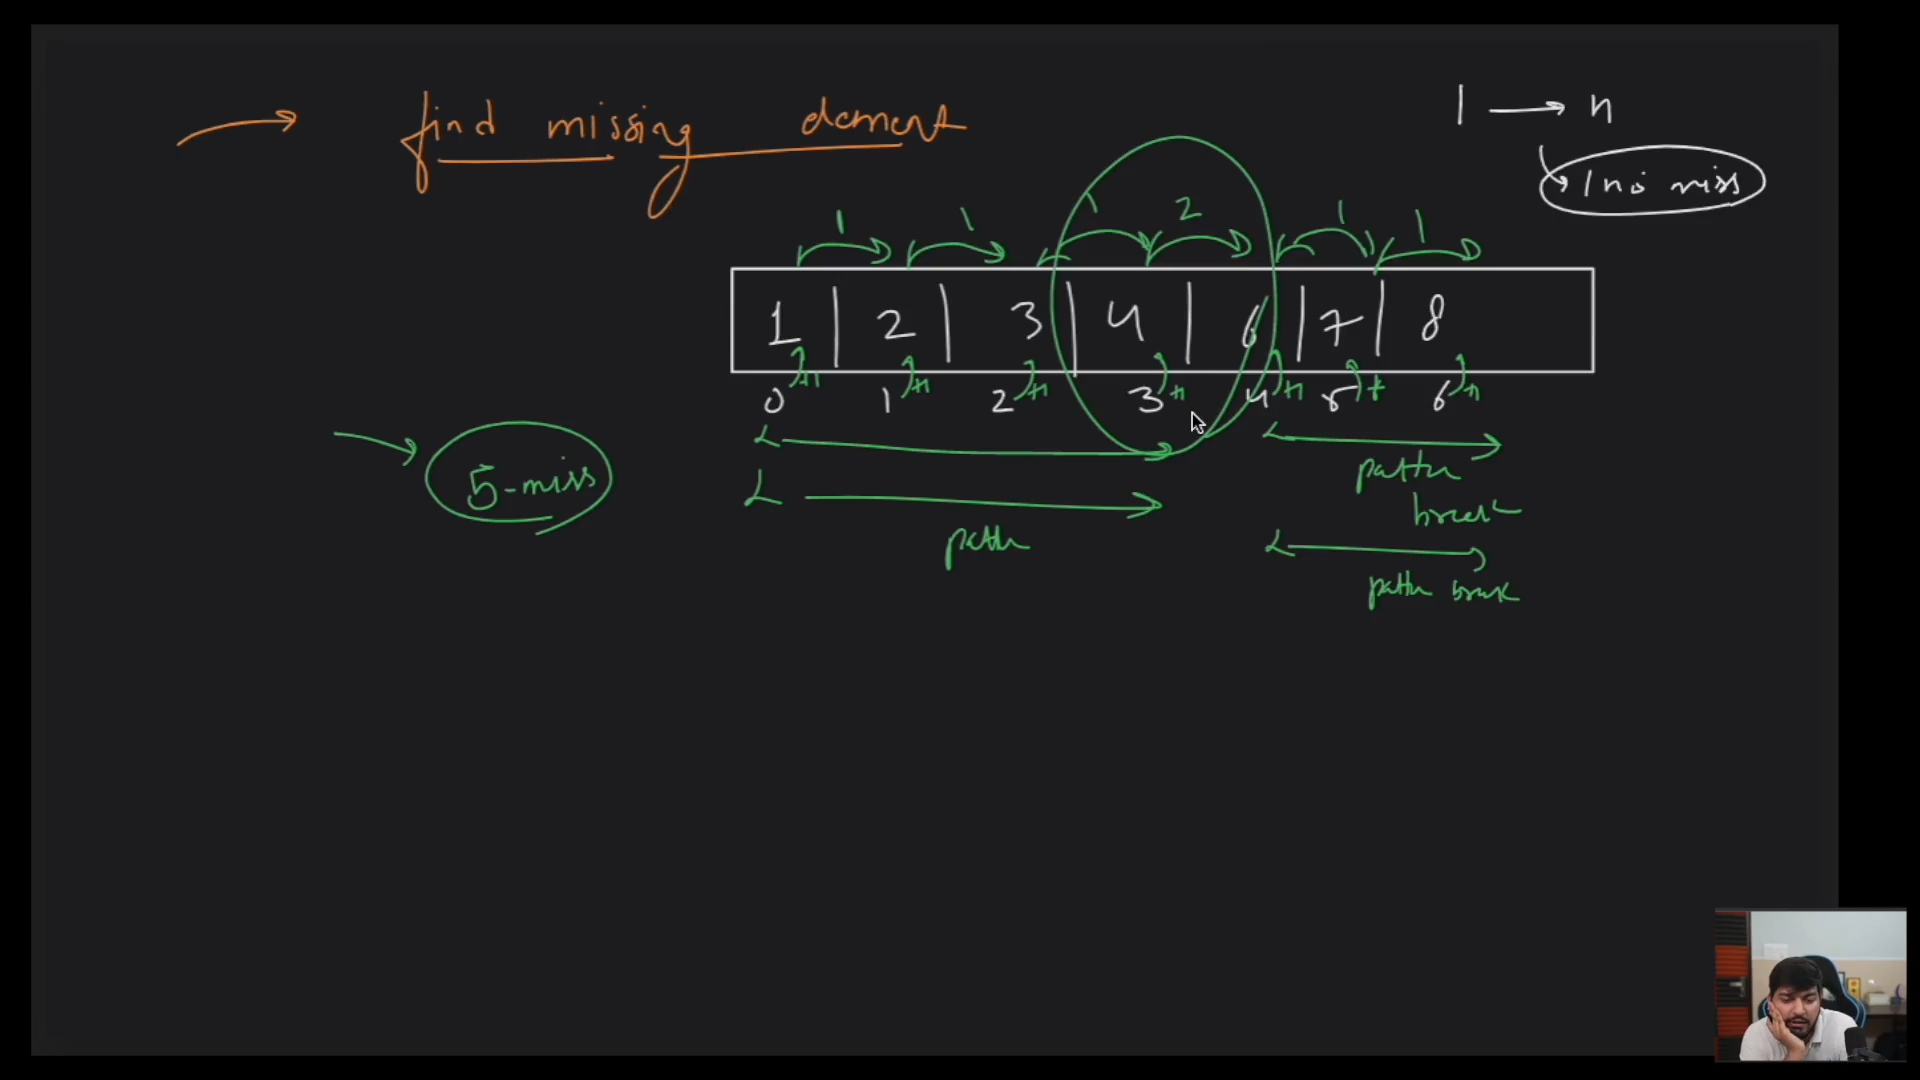 find missing element
1 → n
1 no miss
1 1 1 2 1 1
1 | 2 | 3 | 4 | 6 | 7 | 8
0 1 2 3 4 5 6
5-miss
path
pattn
break
pattn break